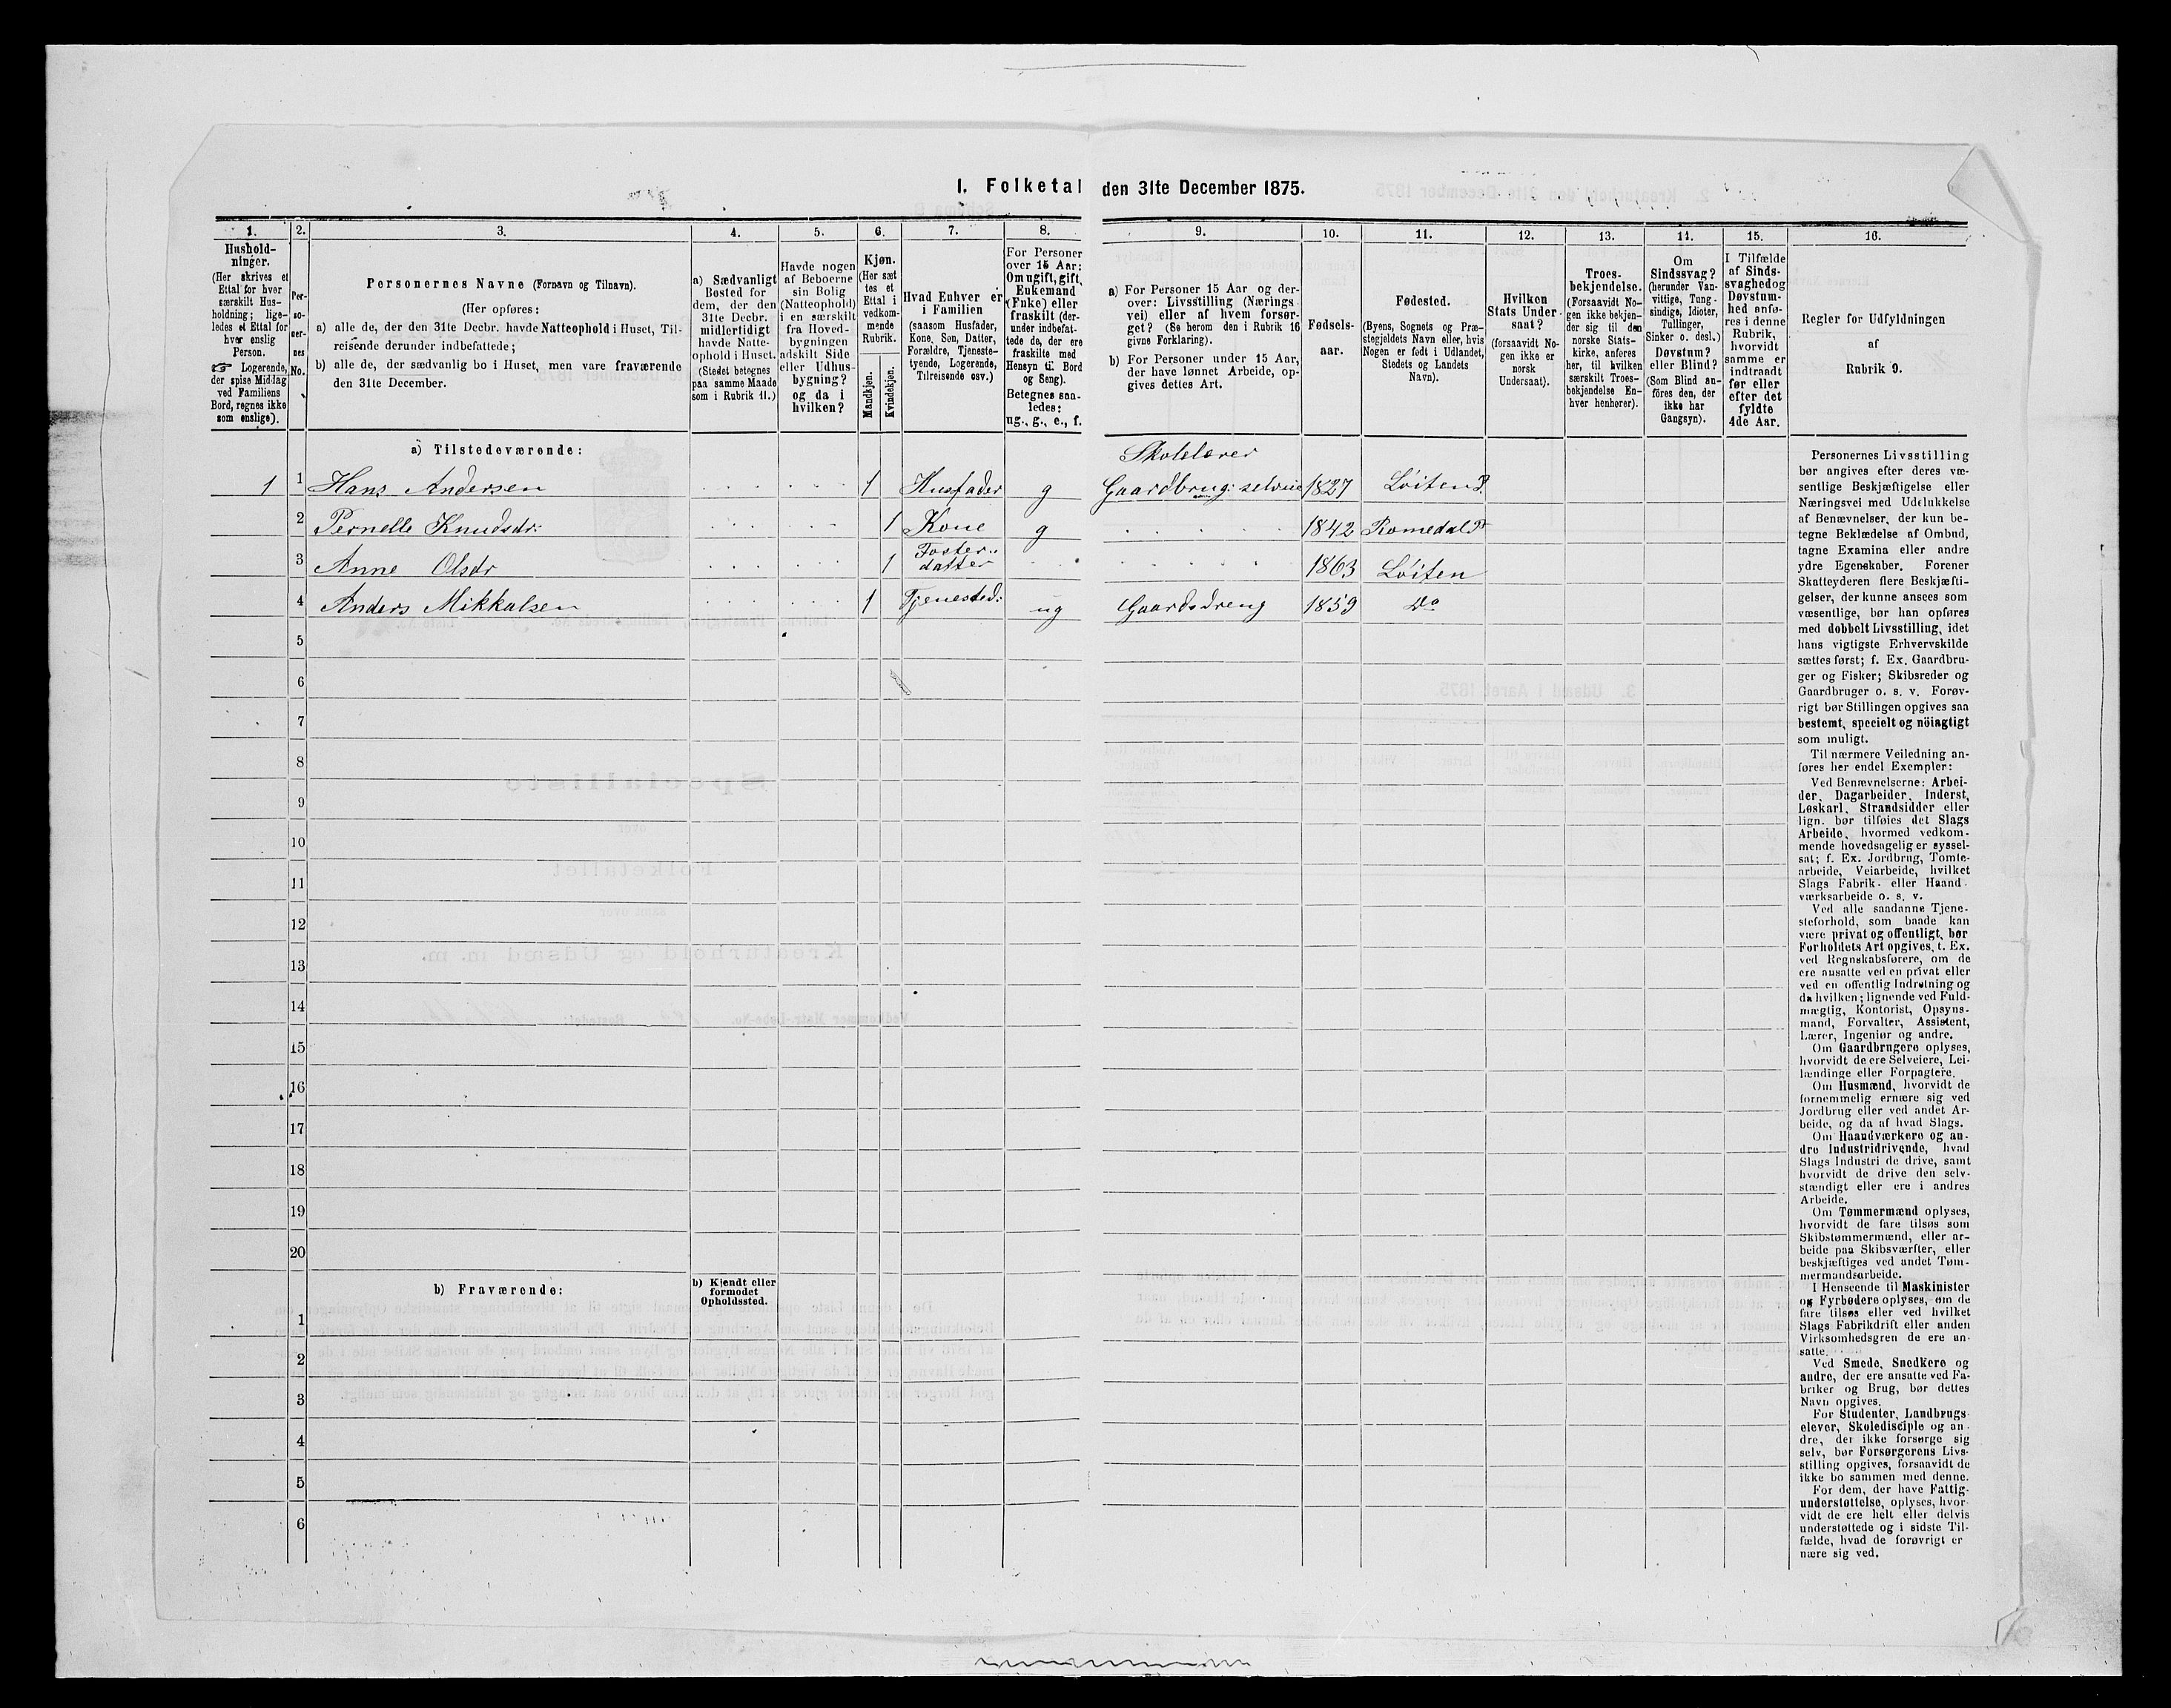 1. Folketal den 31te December 1875.
1.
Hushold-
ninger.
(Her skrives et
Ettal for hver
særskilt Hus-
holdning; lige-
ledes et Ettal for
hver enslig
Person.
☞ Logerende,
der spise Middag
ved Familiens
Bord, regnes ikke
som enslige).
2.
Per-
so-
ner-
nes
No.
3.
Personernes Navne (Fornavn og Tilnavn).
(Her opføres:
a) alle de, der den 31te Decbr. havde Natteophold i Huset, Til-
reisende derunder indbefattede;
b) alle de, der sædvanlig bo i Huset, men vare fraværende
den 31te December.
4.
a) Sædvanligt
Bosted for
dem, der den
31te Decbr.
midlertidigt
havde Natte-
ophold i Huset.
(Stedet betegnes
paa samme Maade
som i Rubrik 11.)
5.
Havde nogen
af Beboerne
sin Bolig
(Natteophold)
i en særskilt
fra Hoved-
bygningen
adskilt Side
eller Udhus-
bygning?
og da i
hvilken?
6.
Kjøn.
(Her sæt
tes et
Ettal i
vedkom-
mende
Rubrik.
Mandkjøn.
Kvindekjøn.
7.
Hvad Enhver er
i Familien
(saasom Husfader,
Kone, Søn, Datter,
Forældre, Tjeneste-
tyende, Logerende,
Tilreisende osv.)
8.
For Personer
over 15 Aar:
Om ugift, gift,
Enkemand
(Enke) eller
fraskilt (der-
under indbefat-
tede de, der ere
fraskilte med
Hensyn til Bord
og Seng).
Betegnes saa-
ledes:
ug., g., e., f.
9.
a) For Personer 15 Aar og der-
over: Livsstilling (Nærings
vei) eller af hvem forsør-
get? (Se herom den i Rubrik 16
givne Forklaring).
b) For Personer under 15 Aar,
der have lønnet Arbeide, op-
gives dettes Art.
10.
Fødsels-
aar.
11.
Fødested.
(Byens, Sognets og Præ-
stegjeldets Navn eller, hvis
Nogen er født i Udlandet,
Stedets og Landets
Navn).
12.
Hvilken
Stats Under-
saat?
(forsaavidt No-
gen ikke er
norsk
Undersaat).
13.
Troes-
bekjendelse.
(Forsaavidt No-
gen ikke bekjen-
der sig til den
norske Stats-
kirke, anføres
her, til hvilken
særskilt Troes-
bekjendelse En-
hver henhører).
14.
Om
Sindssvag?
(herunder Van-
vittige, Tung-
sindige, Idioter,
Tullinger,
Sinker o. desl.)
Døvstum?
eller Blind?
(Som Blind an-
føres den, der
ikke har
Gangsyn).
15.
I Tilfælde
af Sinds-
svaghed og
Døvstum-
hed anfø-
res i denne
Rubrik,
hvorvidt
samme er
indtraadt
før eller
efter det
fyldte
4de Aar.
16.
Regler for Udfyldningen
af
Rubrik 9.
a) Tilstedeværende:
Skolelærer
1 1 Hans Andersen 1 Husfader g Gaardbrug: selveie 1827 Löiten P.
2 Pernelle Knudsdr: 1 Kone g 1842 Romedal Pr
3 Anne Olsdr 1 Foster-
datter 1863 Löiten
4 Anders Mikkalsen 1 Tjenested: ug Gaardsdreng 1859 Do
5
6
7
8
9
10
11
12
13
14
15
16
17
18
19
20
b) Fraværende:
b) Kjendt eller
formodet
Opholdssted.
1
2
3
4
5
6
Personernes Livsstilling
bør angives efter deres væ-
sentlige Beskjæftigelse eller
Næringsvei med Udelukkelse
af Benævnelser, der kun be-
tegne Beklædelse af Ombud,
tagne Examina eller andre
ydre Egenskaber. Forener
Skatteyderen flere Beskjæfti-
gelser, der kunne ansees som
væsentlige, bør han opføres
med dobbelt Livsstilling, idet
hans vigtigste Erhvervskilde
sættes først; f. Ex. Gaardbru-
ger og Fisker; Skibsreder og
Gaardbruger o. s. v. Forøv-
rigt bør Stillingen opgives saa
bestemt, specielt og nöiagtigt
som muligt.
Til nærmere Veiledning an-
føres her endel Exempler:
Ved Benævnelserne: Arbei-
der, Dagarbeider, Inderst,
Løskarl, Strandsidder eller
lign. bør tilføies det Slags
Arbeide, hvormed vedkom-
mende hovedsagelig er syssel-
sat; f. Ex. Jordbrug, Tomte-
arbeide, Veiarbeide, hvilket
Slags Fabrik- eller Haand-
værksarbeide o. s. v.
Ved alle saadanne Tjene-
steforhold, som baade kan
være privat og offentligt, bør
Forholdets Art opgives, f. Ex.
ved Regnskabsførere, om de
ere ansatte ved en privat eller
ved en offentlig Indretning og
da hvilken; lignende ved Fuld-
mægtig, Kontorist, Opsyns-
mand, Forvalter, Assistent,
Lærer, Ingeniør og andre.
Om Gaardbrugere oplyses,
hvorvidt de ere Selveiere, Lei-
lændinge eller Forpagtere.
Om Husmænd, hvorvidt de
fornemmelig ernære sig ved
Jordbrug eller ved andet Ar-
beide, og da af hvad Slags.
Om Haandværkere og an-
dre Industridrivende, hvad
Slags Industri de drive, samt
hvorvidt de drive den selv-
stændigt eller ere i andres
Arbeide.
Om Tømmermænd oplyses,
hvorvidt de fare tilsøs som
Skibstømmermænd, eller ar-
beide paa Skibsværfter, eller
beskjæftiges ved andet Tøm-
mermandsarbeide.
I Henseende til Maskinister
og Fyrbødere oplyses, om de
fare tilsøs eller ved hvilket
Slags Fabrikdrift eller anden
Virksomhedsgren de ere an-
satte.
Ved Smede, Snedkere og
andre, der ere ansatte ved Fa-
briker og Brug, bør dettes
Navn opgives.
For Studenter, Landbrugs-
elever, Skoledisciple og an-
dre, der ikke forsørge sig
selv, bør Forsørgerens Livs-
stilling opgives, forsaavidt de
ikke bo sammen med denne.
For dem, der have Fattig-
understøttelse, oplyses, hvor-
vidt de ere helt eller delvis
understøttede og i sidste Til-
fælde, hvad de forøvrigt er
nære sig ved.